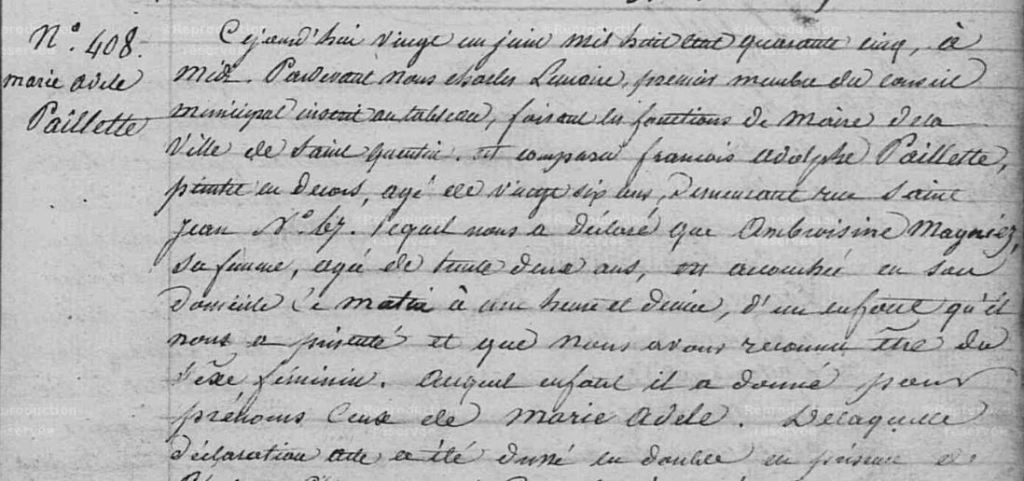 N.° 408.
Marie Adele
Paillette
Cejourd'hui vingt un juin mil huit cent quarante cinq, à
Midi. Pardevant nous Charles Lemaire, premier membre du conseil
municipal inscrit au tableau, faisant les fonctions de Maire de la
Ville de Saint Quentin. est comparu françois Adolphe Paillette,
peintre en decors, agé de vingt six ans, demeurant rue Saint
Jean N.° 67. lequel nous a déclaré que Ambroisine Magniez,
sa femme, agée de trente deux ans, est accouchée en son
domicile ce matin à une heure et demie, d'un enfant qu'il
nous a présenté et que nous avons reconnu être du
sexe féminin. Auquel enfant il a donné pour
prénoms ceux de Marie Adele. De laquelle
déclaration acte a été dressé en double en présence de